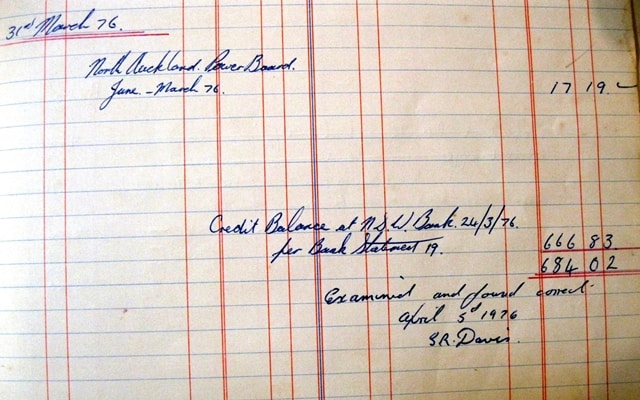 31st March 76.
North Auckland Power Board.
June - March 76. 17 19
Credit Balance at N.S.W. Bank. 24/3/76.
per Bank Statement 19. 666 83.
684 02
Examined and found correct.
April 5th 1976
S.R. Davis.